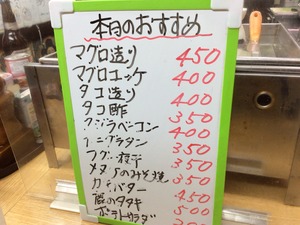 本日のおすすめ
マグロ造り 450
マグロユッケ 400
タコ造り 400
タコ酢 350
クジラベーコン 400
カニグラタン 350
フグ一夜干 350
のみそ焼 350
カキバター 450
豚のタタキ 500
ポテトサラダ